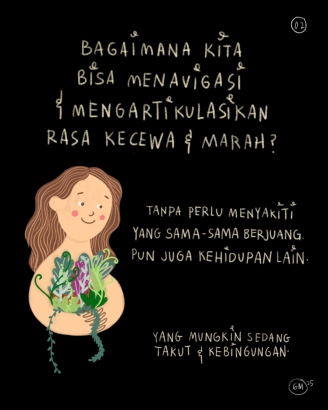 02
BAGAIMANA KITA
BISA MENAVIGASI
& MENGARTIKULASIKAN
RASA KECEWA & MARAH?
TANPA PERLU MENYAKITI
YANG SAMA-SAMA BERJUANG.
PUN JUGA KEHIDUPAN LAIN.
YANG MUNGKIN SEDANG
TAKUT & KEBINGUNGAN.
GM 25